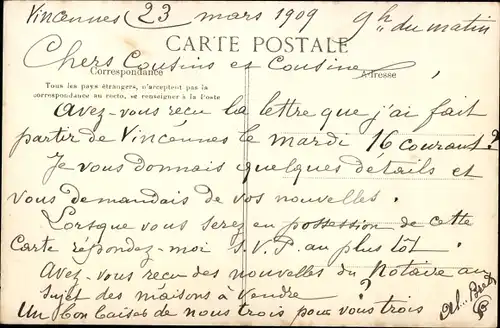 Vincennes 23 mars 1909 9h du matin
CARTE POSTALE
Chers Cousins et Cousine,
Correspondance Adresse
Tous les pays étrangers, n'acceptent pas la
correspondance au recto, se renseigner à la Poste
Avez-vous reçu la lettre que j'ai fait
partir de Vincennes le mardi 16 courant?
Je vous donnais quelques détails et
vous demandais de vos nouvelles.
Lorsque vous serez en possession de cette
Carte répondez-moi S.V.P. au plus tôt.
Avez-vous reçu des nouvelles du Notaire au
sujet des maisons à Vendre ?
Un bon baiser de nous trois pour vous trois